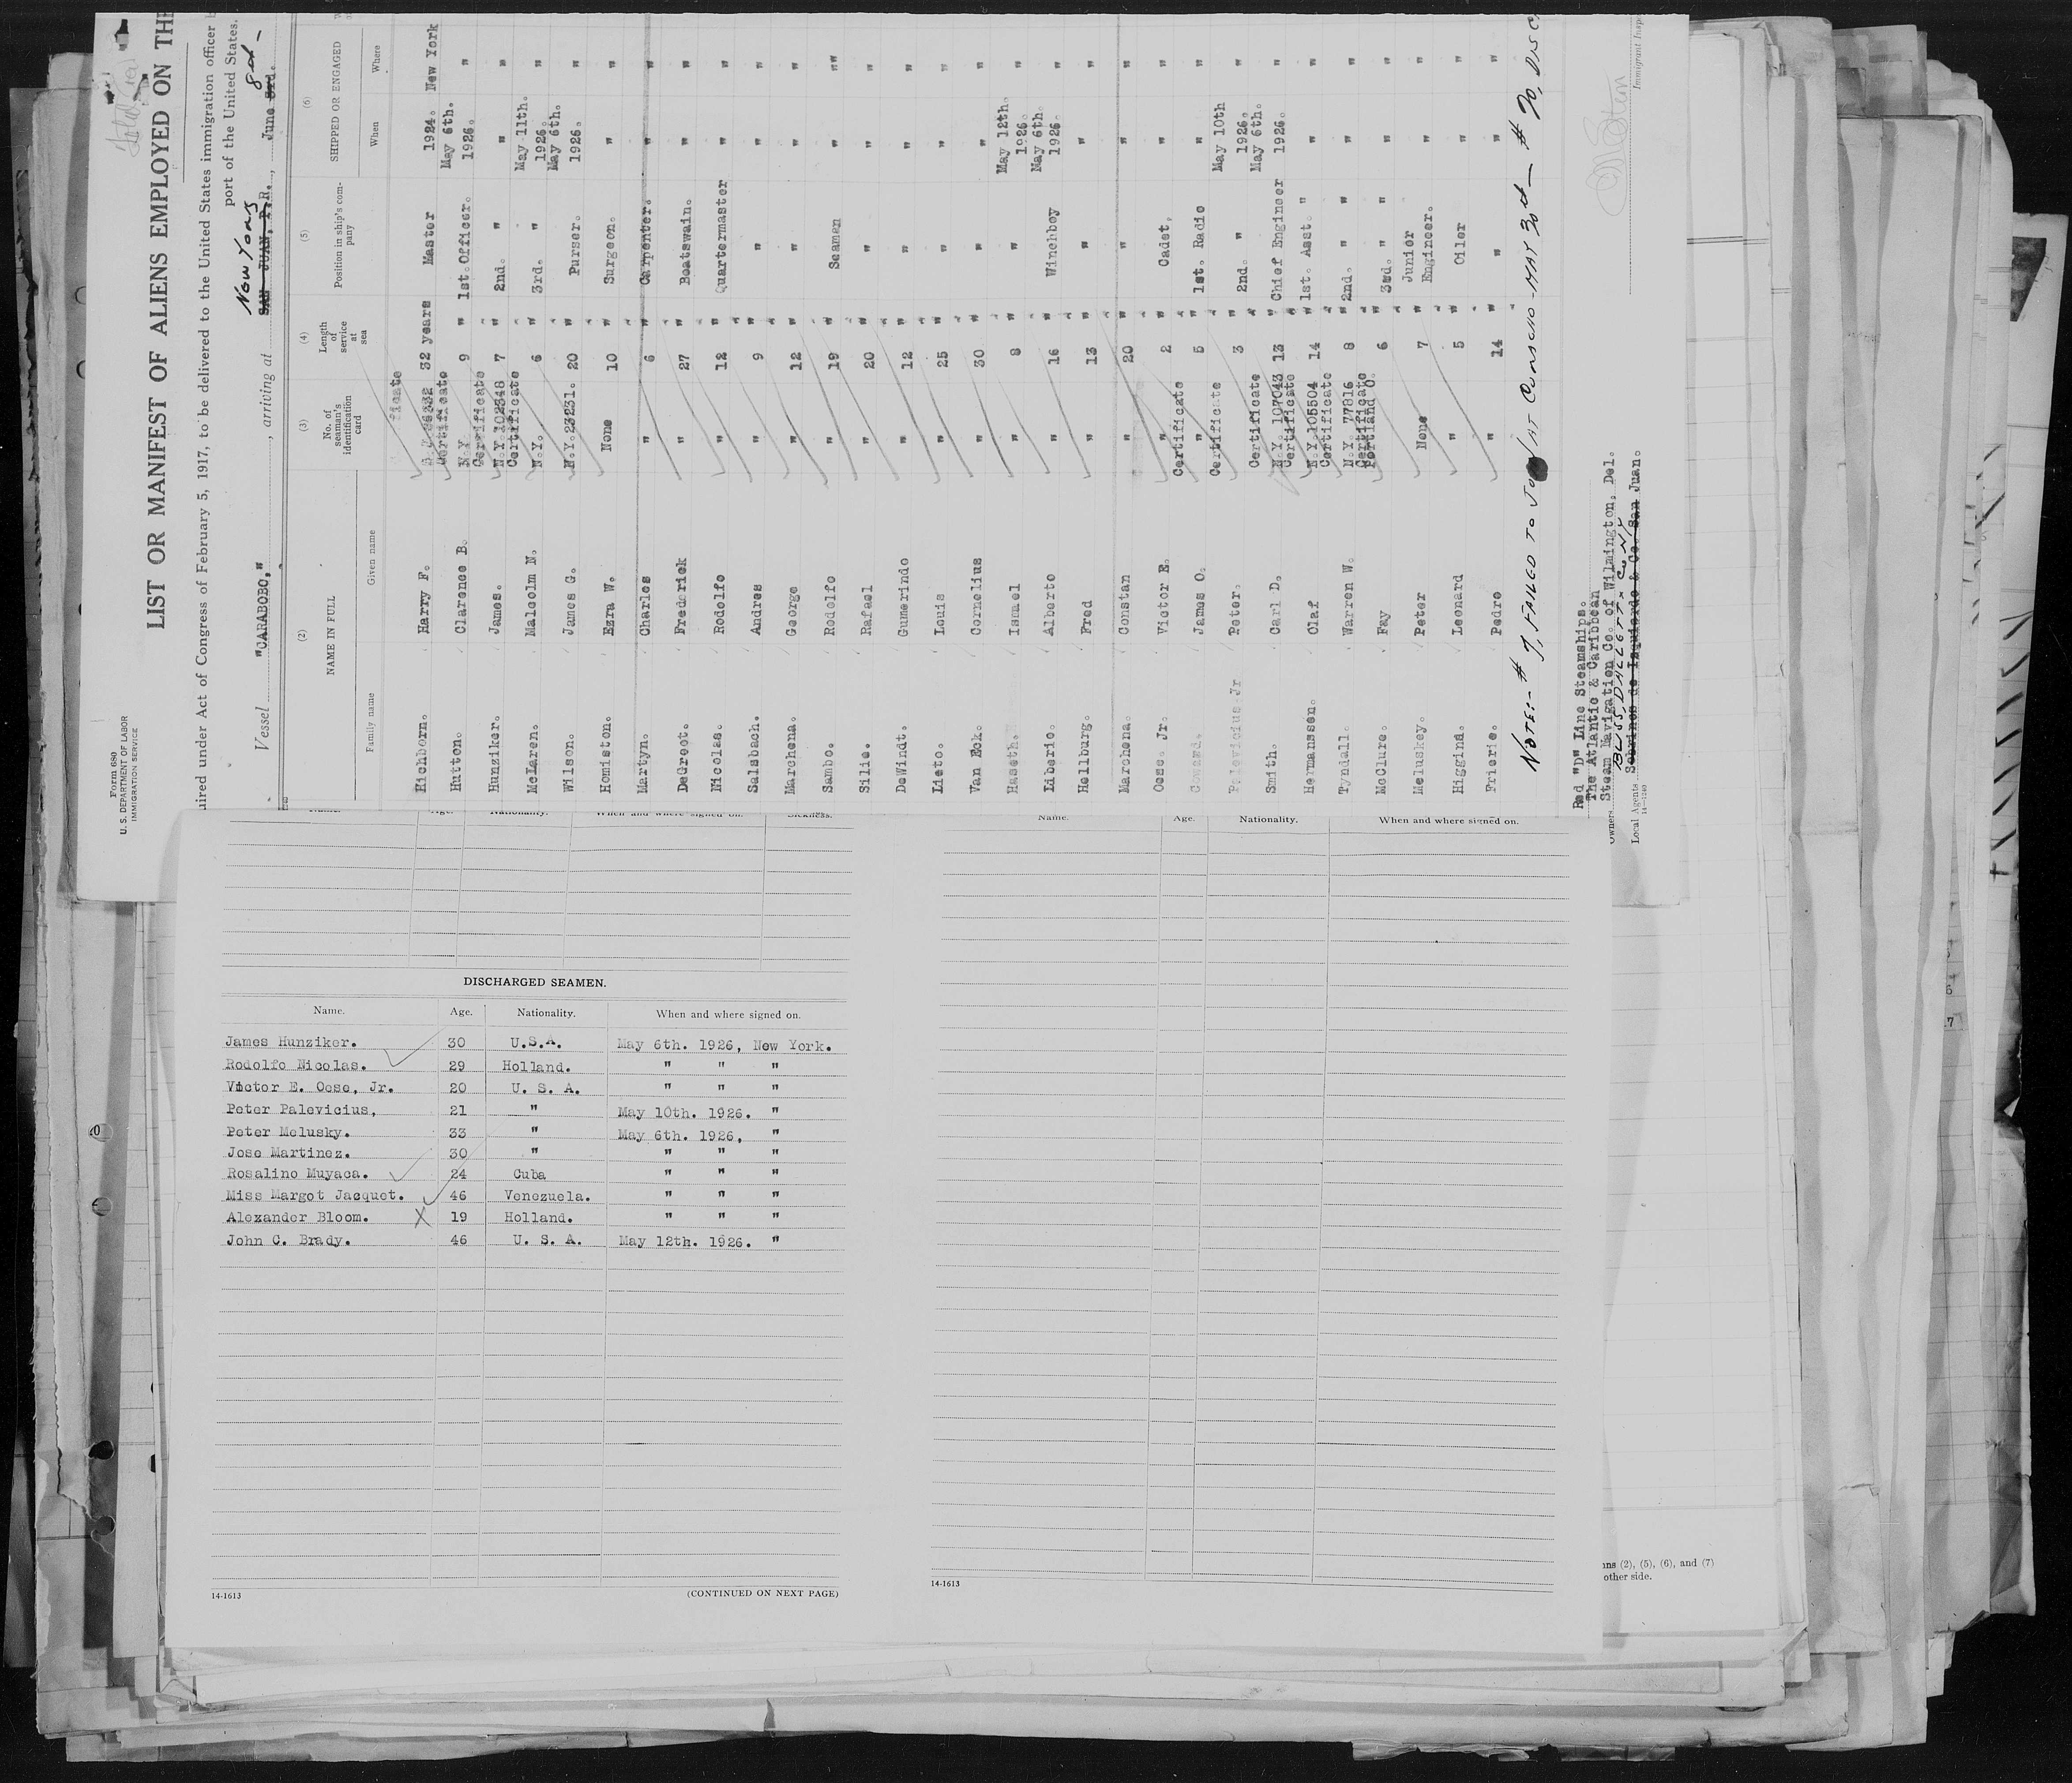 Form 680
U. S. DEPARTMENT OF LABOR
IMMIGRATION SERVICE
LIST OR MANIFEST OF ALIENS EMPLOYED ON THE
uired under Act of Congress of February 5, 1917, to be delivered to the United States immigration officer
port of the United States.
Vessel "CARABOBO," , arriving at SAN JUAN, P.R. New York , June 3rd. 8th -
(2) NAME IN FULL
Family name Given name
(3) No. of seaman's identification card
(4) Length of service at sea
(5) Position in ship's company
(6) SHIPPED OR ENGAGED
When Where
Hichborn. Harry F. 32 years Master 1924. New York
Hutton. Clarence B. Certificate N.Y. 9 " 1st.Officer. May 6th. 1926. "
Hunziker. James. Certificate N.Y.102348 7 " 2nd. " " "
McLaren. Malcolm N. Certificate N.Y. 6 " 3rd. " May 11th. 1926. "
Wilson. James G. N.Y.23231. 20 " Purser. May 6th. 1926. "
Homiston. Ezra W. None 10 " Surgeon. " "
Martyn. Charles " 6 " Carpenter. " "
DeGroot. Frederick " 27 " Boatswain. " "
Nicolas. Rodolfo " 12 " Quartermaster " "
Salsbach. Andres " 9 " " " "
Marchena. George " 12 " " " "
Sambo. Rodolfo " 19 " Seaman " ""
Silie. Rafael " 20 " " " "
DeWindt. Gumerindo " 12 " " " "
Lieto. Louis " 25 " " " "
Van Eck. Cornelius " 30 " " " "
Haseth. Ismael " 8 " " May 12th. 1926. "
Liberic. Alberto " 16 " Winchboy May 6th. 1926. "
Hellburg. Fred " 13 " " " "
Marchena. Constan " 20 " " " "
Oose. Jr. Victor E. " 2 " Cadet, " "
Goward. James O. Certificate " 5 " 1st. Radio " "
Palevicius.Jr Peter. Certificate 3 " 2nd. " May 10th 1926. "
Smith. Carl D. Certificate N.Y. 107043 13 " Chief Engineer May 6th. 1926. "
Hermanssen. Olaf Certificate N.Y.105504 14 " 1st. Asst. " " "
Tyndall. Warren W. Certificate N.Y. 77816 8 " 2nd. " " " "
McClure. Fay Certificate Portland O. 6 " 3rd. " " "
Meluskey. Peter None 7 " Junior Engineer. " "
Higgins. Leonard " 5 " Oiler " "
Frierie. Pedro " 14 " " " "
NOTE:- # 7, FAILED TO JOIN AT CURACAO - MAY 30th - # 70, DISC
Red "D" Line Steamships.
The Atlantic & Caribbean
Owners Steam Navigation Co. of Wilmington, Del.
BLISS, DALLETT & CO NY
Local Agents Sobrinos de Izquierdo & Co. San Juan.
14-1240
Immigrant Inspec
Name. Age. Nationality. When and where signed on. Sickness.
DISCHARGED SEAMEN.
Name. Age. Nationality. When and where signed on.
James Hunziker. 30 U.S.A. May 6th. 1926, New York.
Rodolfo Nicolas. 29 Holland. " " "
Victor E. Oose, Jr. 20 U. S. A. " " "
Peter Palevicius, 21 " May 10th. 1926. "
Peter Melusky. 33 " May 6th. 1926, "
Jose Martinez. 30 " " " "
Rosalino Muyaca. 24 Cuba " " "
Miss Margot Jacquet. 46 Venezuela. " " "
Alexander Bloom. X 19 Holland. " " "
John C. Brady. 46 U. S. A. May 12th. 1926. "
14-1613 (CONTINUED ON NEXT PAGE)
Name. Age. Nationality. When and where signed on.
14-1613
ns (2), (5), (6), and (7)
other side.